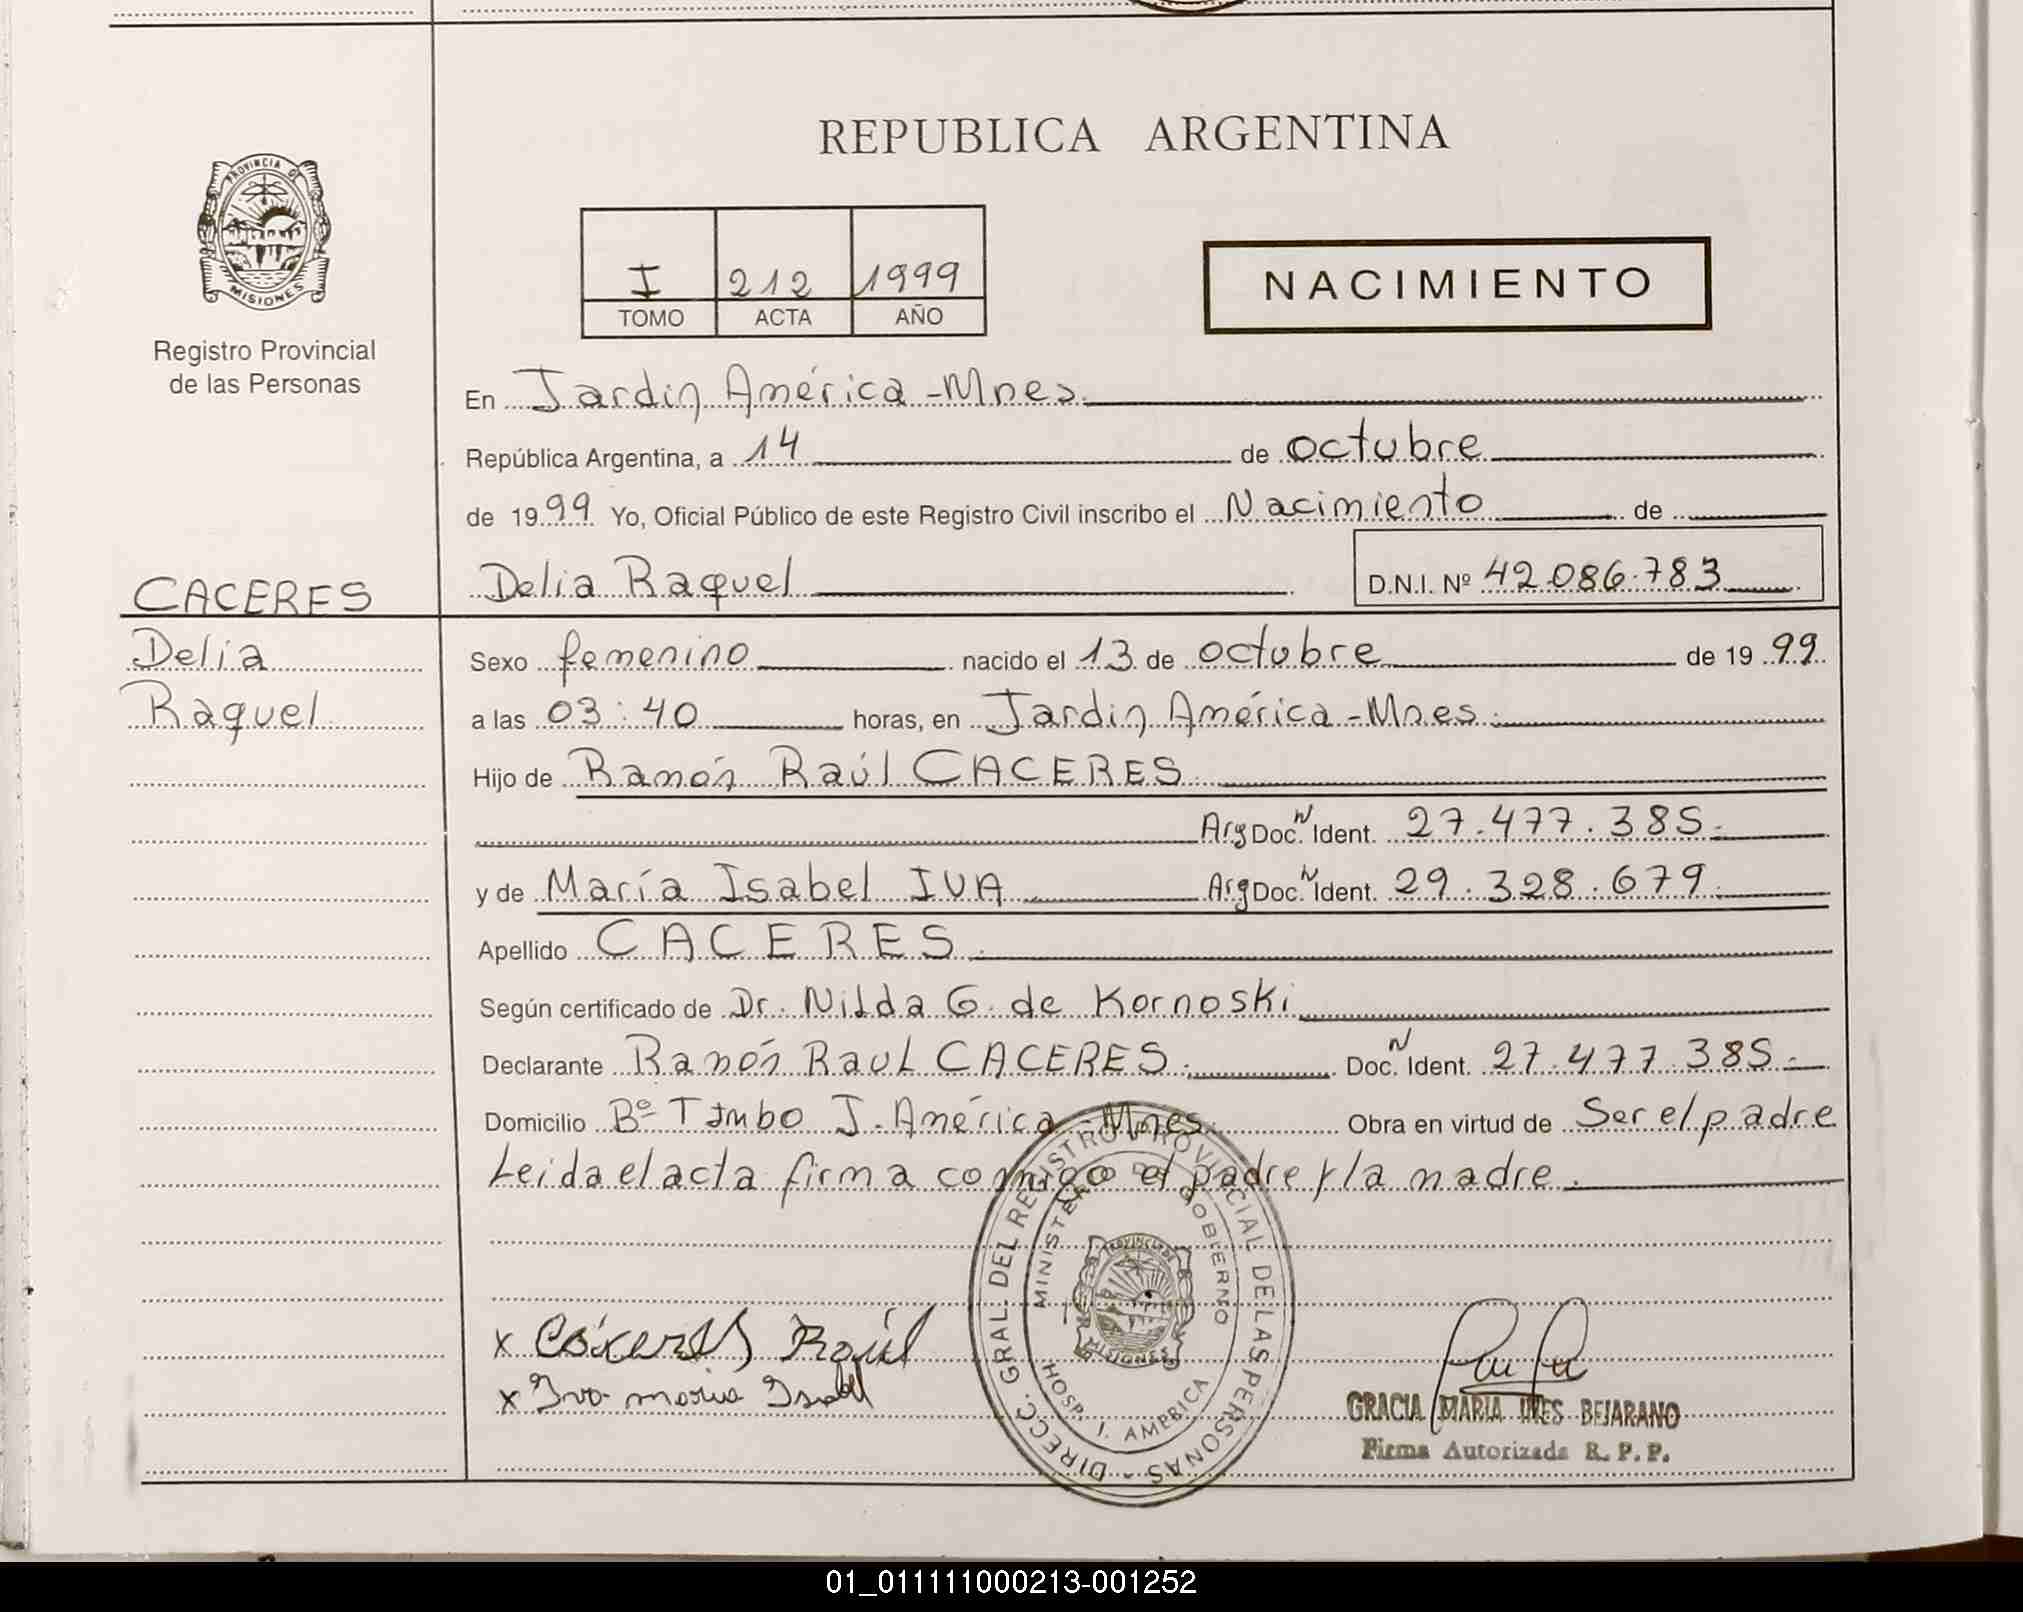 REPUBLICA ARGENTINA
PROVINCIA DE
MISIONES
Registro Provincial
de las Personas
I 212 1999
TOMO ACTA AÑO
NACIMIENTO
En Jardin América - Mnes.
República Argentina, a 14 de octubre
de 1999 Yo, Oficial Público de este Registro Civil inscribo el Nacimiento de
CACERES
Delia
Raquel
Delia Raquel D.N.I. Nº 42.086.783
Sexo femenino nacido el 13 de octubre de 1999
a las 03:40 horas, en Jardin América - Mnes.
Hijo de Ramón Raúl CACERES
Arg Doc. N Ident. 27.477.385.-
y de María Isabel IVA Arg Doc. N Ident. 29.328.679.
Apellido CACERES.
Según certificado de Dr. Nilda G. de Kornoski
Declarante Ramón Raul CACERES. Doc. N Ident. 27.477.385.-
Domicilio Bº Timbo J. América - Mnes. Obra en virtud de Ser el padre
Leida el acta firma conmigo el padre y la madre.
DIRECC. GRAL. DEL REGISTRO PROVINCIAL DE LAS PERSONAS -
MINISTERIO DE GOBIERNO
PROVINCIA DE
MISIONES
HOSP. J. AMERICA
x Cáceres Raúl
x Iva maria Isabel
GRACIA MARIA INES BEJARANO
Firma Autorizada R. P. P.
01_011111000213-001252